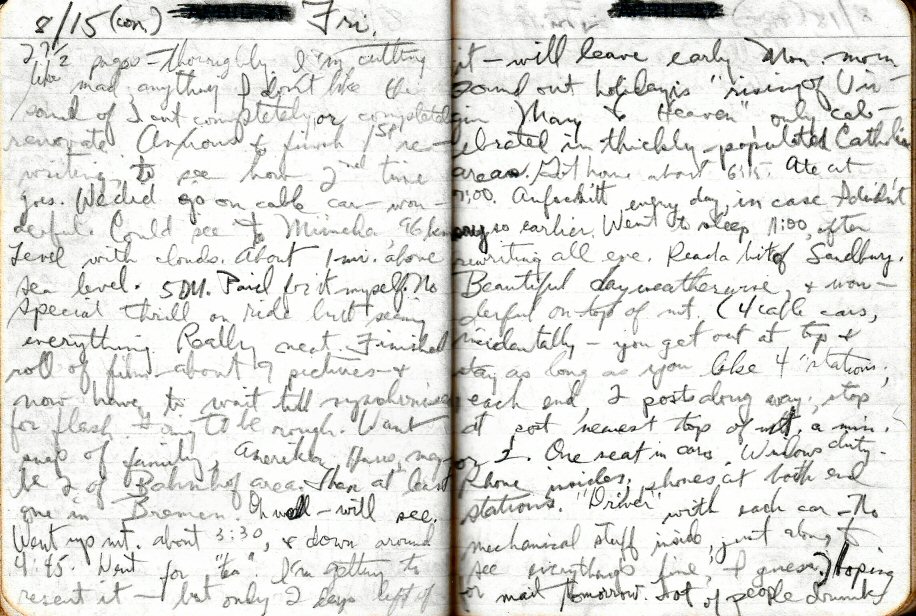 8/15 (con) Fri.
27 1/2 pages - thoroughly. I'm cutting
like mad, anything I don't like the
sound of I cut completely, or completely
renovate. Anxious to finish 1st re-
writing, to see how 2nd time
goes. We did go on cable car - won-
derful. Could see to Munich, 96 km
Level with clouds. About 1 mi. above
sea level. 5 DM. Paid for it myself. No
special thrill on ride but seeing
everything. Really neat. Finished
roll of film - about 19 pictures - &
now have to wait till
for flash. going to be rough. Want
snap of family, Amerika Haus, may
be 2 of Bahnhof area. Then at least
one in Bremen. Oh well - will see.
Went up mt. about 3:30, & down around
4:45. Went for "tea". I'm getting to
resent it - but only 2 days left of
it - will leave early Mon. morn
Found out holiday is "rising of Vir-
gin Mary to Heaven" only cel-
ebrated in thickly-populated Catholic
areas. Got home about 6:15. Ate at
7:00. every day, in case I didn't
say so earlier. Went to sleep 11:00, after
rewriting all eve. Read a bit of Sandburg.
Beautiful day weatherwise, & won-
derful on top of mt. (4 cable cars,
incidentally - you get out at top &
stay as long as you like 4 "stations,"
each end, 2 posts along way, stop
at post nearest top of mt. a min.
or 2. One seat in cars. Windows dirty.
Phone insides, phones at both end
stations. "Driver" with each car - no
mechanical stuff inside, just along to
see everything's fine, I guess.) Hoping
for mail tomorrow. Lot of people drunk